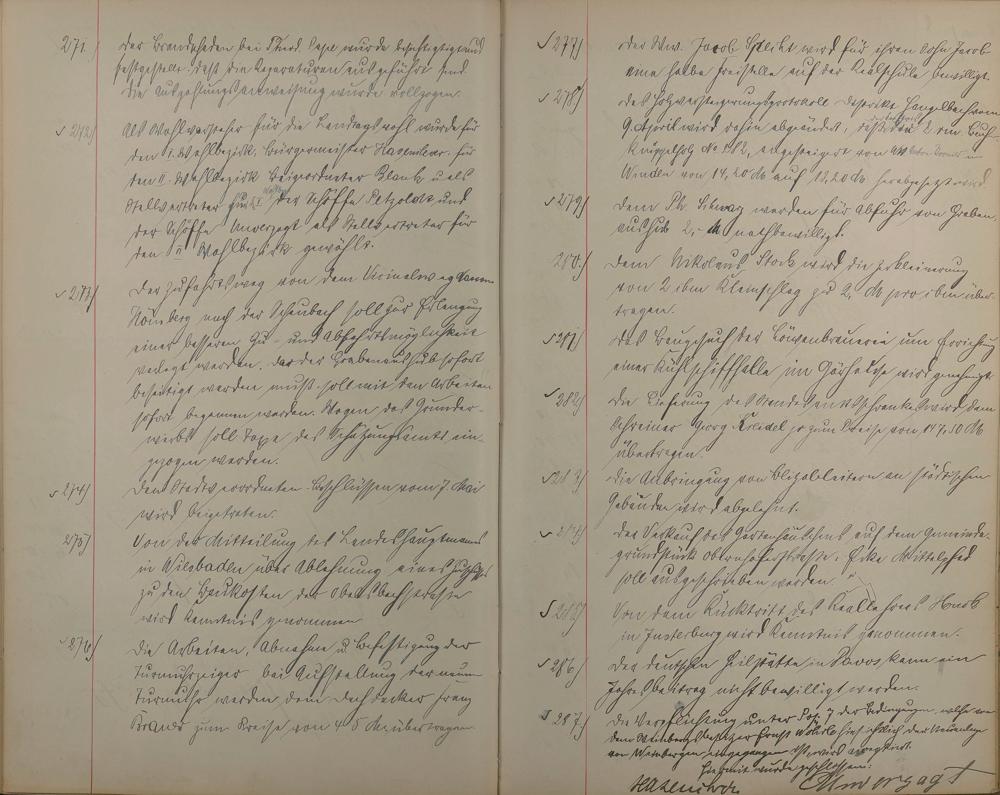 271.) Der Brandschaden bei Ferd. wurde besichtigt und
festgestellt, daß die Reparaturen ausgeführt sind.
Die Auszahlungsanweisung wurde vollzogen.
272) Als Wahlvorsteher für die Landtagswahl wurde für
den I. Wahlbezirk, Bürgermeister Hasenclever, für
den II. Wahlbezirk Beigeordneter Blank u. als
Stellvertreter zum I. der Schöffe Petzold und
der Schöffe Unverzagt als Stellvertreter für
den II Wahlbezirk gewählt.
273) Der Zufahrtsweg von dem Vicinalweg
nach der soll zur Erlangung
einer besseren Zu- und Abfahrtsmöglichkeit
verlegt werden. Da der Grabenaushub sofort
beseitigt werden muß soll mit den Arbeiten
sofort begonnen werden. Wegen des Grunder-
werbs soll Taxe des Schätzungsamts ein-
gezogen werden.
274) Den Stadtverordneten-Beschlüssen vom 7. Mai
wird beigetreten.
275) Von der Mitteilung des Landeshauptmanns
in Wiesbaden über Ablehnung eines Zuschusses
zu den Baukosten der
wird Kenntnis genommen
276) Die Arbeiten, Abnahme u. Befestigung der
Turmuhrzeiger bei Aufstellung der neuen
Turmuhr werden dem Dachdecker Franz
Brands zum Preise von 45 M. übertragen
277) Der Ww. Jacob wird für ihren Sohn Jacob
eine halbe Freistelle auf der Realschule bewilligt.
278) Das Holzversteigerungsprotokoll Distrikt Hengelbach vom
9. April wird dahin abgeändert, daß 2 rm Buch.
Knüppelholz No 182, angesteigert von
Winden von 14,20 M auf 12,20 M herabgesetzt wird.
279) Dem Ph. werden für Abfuhr von Graben
aushub 2,- M nachbewilligt.
280.) Dem Nikolaus Stock wird die Zerkleinerung
von 2 cbm Kleinschlag zu 2, M pro cbm über-
tragen.
281) Das Baugesuch der Löwenbrauerei um Errichtung
einer Kühlschiffhalle im wird genehmigt
282) Die Lieferung des Standesamtsschrankes wird dem
Schreiner Georg jr zum Preise von 147,50 M
übertragen.
283) Die Anbringung von Blitzableitern an städtischen
Gebäuden wird abgelehnt.
284) Der Verkauf des Gartenhäuschens auf dem Gemeinde-
grundstück Obernhoferstrasse, Ecke Mittelpfad
soll ausgeschrieben werden.
285) Von dem Rücktritt des Reallehrers
in Insterburg wird Kenntnis genommen.
286) Der deutschen Heilstätte in Davos kann ein
Jahresbeitrag nicht bewilligt werden.
287.) Die Verpflichtung unter Pos. 7 der Bedingungen, welche von
dem Weinbergsbesitzer Ernst hinsichtlich der Neuanlage
von Weinbergen eingegangen ist, wird
Hiermit wurde geschlossen:
Hasenclever Unverzagt